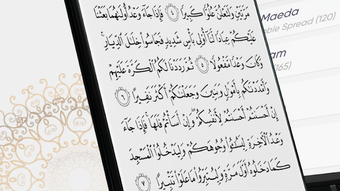 مَرَّتَيْنِ وَلَتَعْلُنَّ عُلُوًّا كَبِيرًا ٤ فَإِذَا جَآءَ وَعْدُ أُولَىٰهُمَا بَعَثْنَا
عَلَيْكُمْ عِبَادًا لَّنَآ أُو۟لِى بَأْسٍ شَدِيدٍ فَجَاسُوا۟ خِلَـٰلَ ٱلدِّيَارِ
وَكَانَ وَعْدًا مَّفْعُولًا ٥ ثُمَّ رَدَدْنَا لَكُمُ ٱلْكَرَّةَ عَلَيْهِمْ
وَأَمْدَدْنَـٰكُم بِأَمْوَٰلٍ وَبَنِينَ وَجَعَلْنَـٰكُمْ أَكْثَرَ نَفِيرًا ٦
إِنْ أَحْسَنتُمْ أَحْسَنتُمْ لِأَنفُسِكُمْ وَإِنْ أَسَأْتُمْ فَلَهَا فَإِذَا جَآءَ
وَعْدُ ٱلْـَٔاخِرَةِ لِيَسُـۥٓـُٔوا۟ وُجُوهَكُمْ وَلِيَدْخُلُوا۟ ٱلْمَسْجِدَ
كَمَا دَخَلُوهُ أَوَّلَ مَرَّةٍ وَلِيُتَبِّرُوا۟ مَا عَلَوْا۟ تَتْبِيرًا ٧
Maeda
ble Spread (120)
am
65)